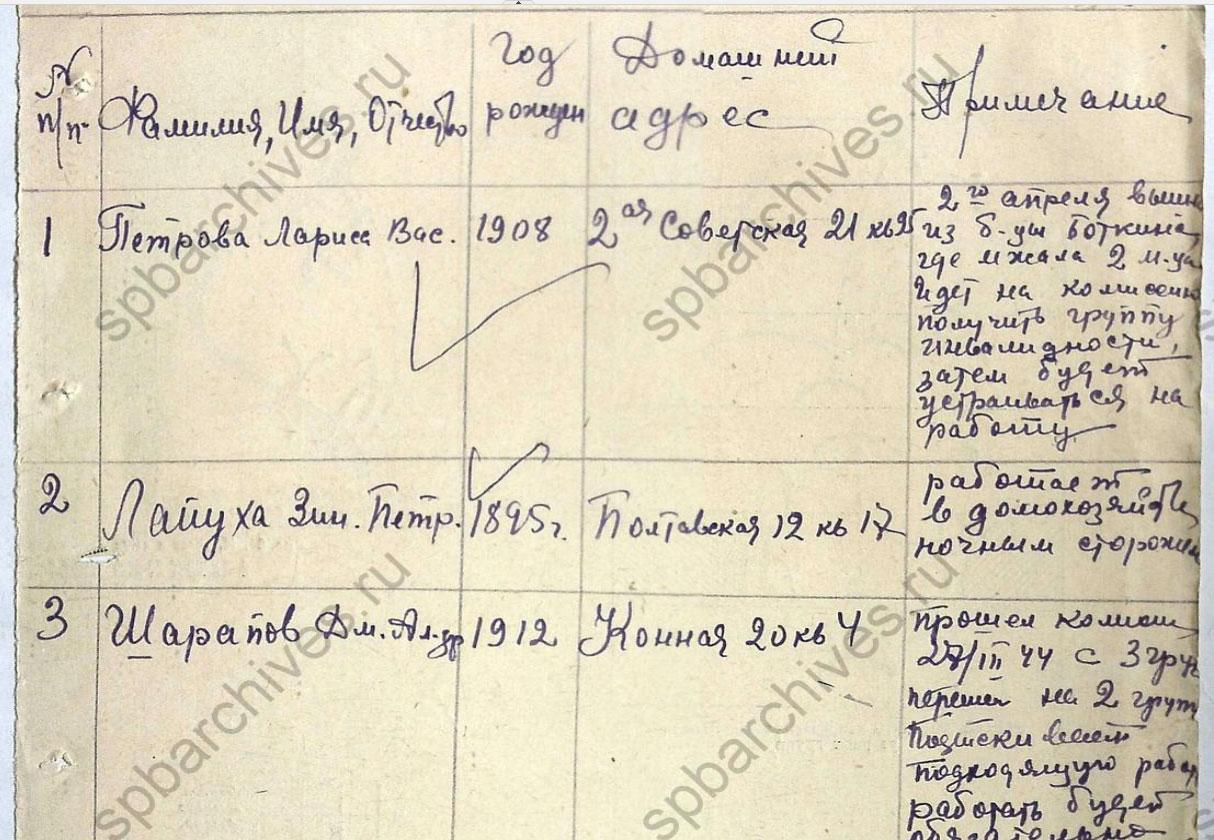 N
п/п
Фамилия, Имя, Отчество
год
рожден
Домашний
адрес
Примечание
1
Петрова Лариса Вас.
1908
2ая Советская 21 кв 25
2го апреля вышла
из б-цы Боткина,
где лежала 2 м-ца
Идет на комиссию
получить группу
инвалидности,
затем будет
устраиваться на
работу
2
Лапуха Зин. Петр.
1895г.
Полтавская 12 кв 17
работает
в домохозяйстве
ночным сторожем
3
Шарапов Дм. Ал-др
1912
Конная 20 кв 4
прошел комисс
27/III 44 с 3 груп
перешел на 2 групп
подходящую работ
работать будет
обязательно
spbarchives.ru
spbarchives.ru
spbarchives.ru
spbarchives.ru